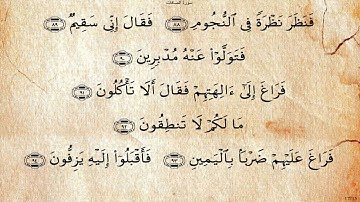 سورة الصافات
فَنَظَرَ نَظْرَةً فِى ٱلنُّجُومِ ٨٨ فَقَالَ إِنِّى سَقِيمٌ ٨٩
فَتَوَلَّوْا۟ عَنْهُ مُدْبِرِينَ ٩٠
فَرَاغَ إِلَىٰٓ ءَالِهَتِهِمْ فَقَالَ أَلَا تَأْكُلُونَ ٩١
مَا لَكُمْ لَا تَنطِقُونَ ٩٢
فَرَاغَ عَلَيْهِمْ ضَرْبًۢا بِٱلْيَمِينِ ٩٣ فَأَقْبَلُوٓا۟ إِلَيْهِ يَزِفُّونَ ٩٤